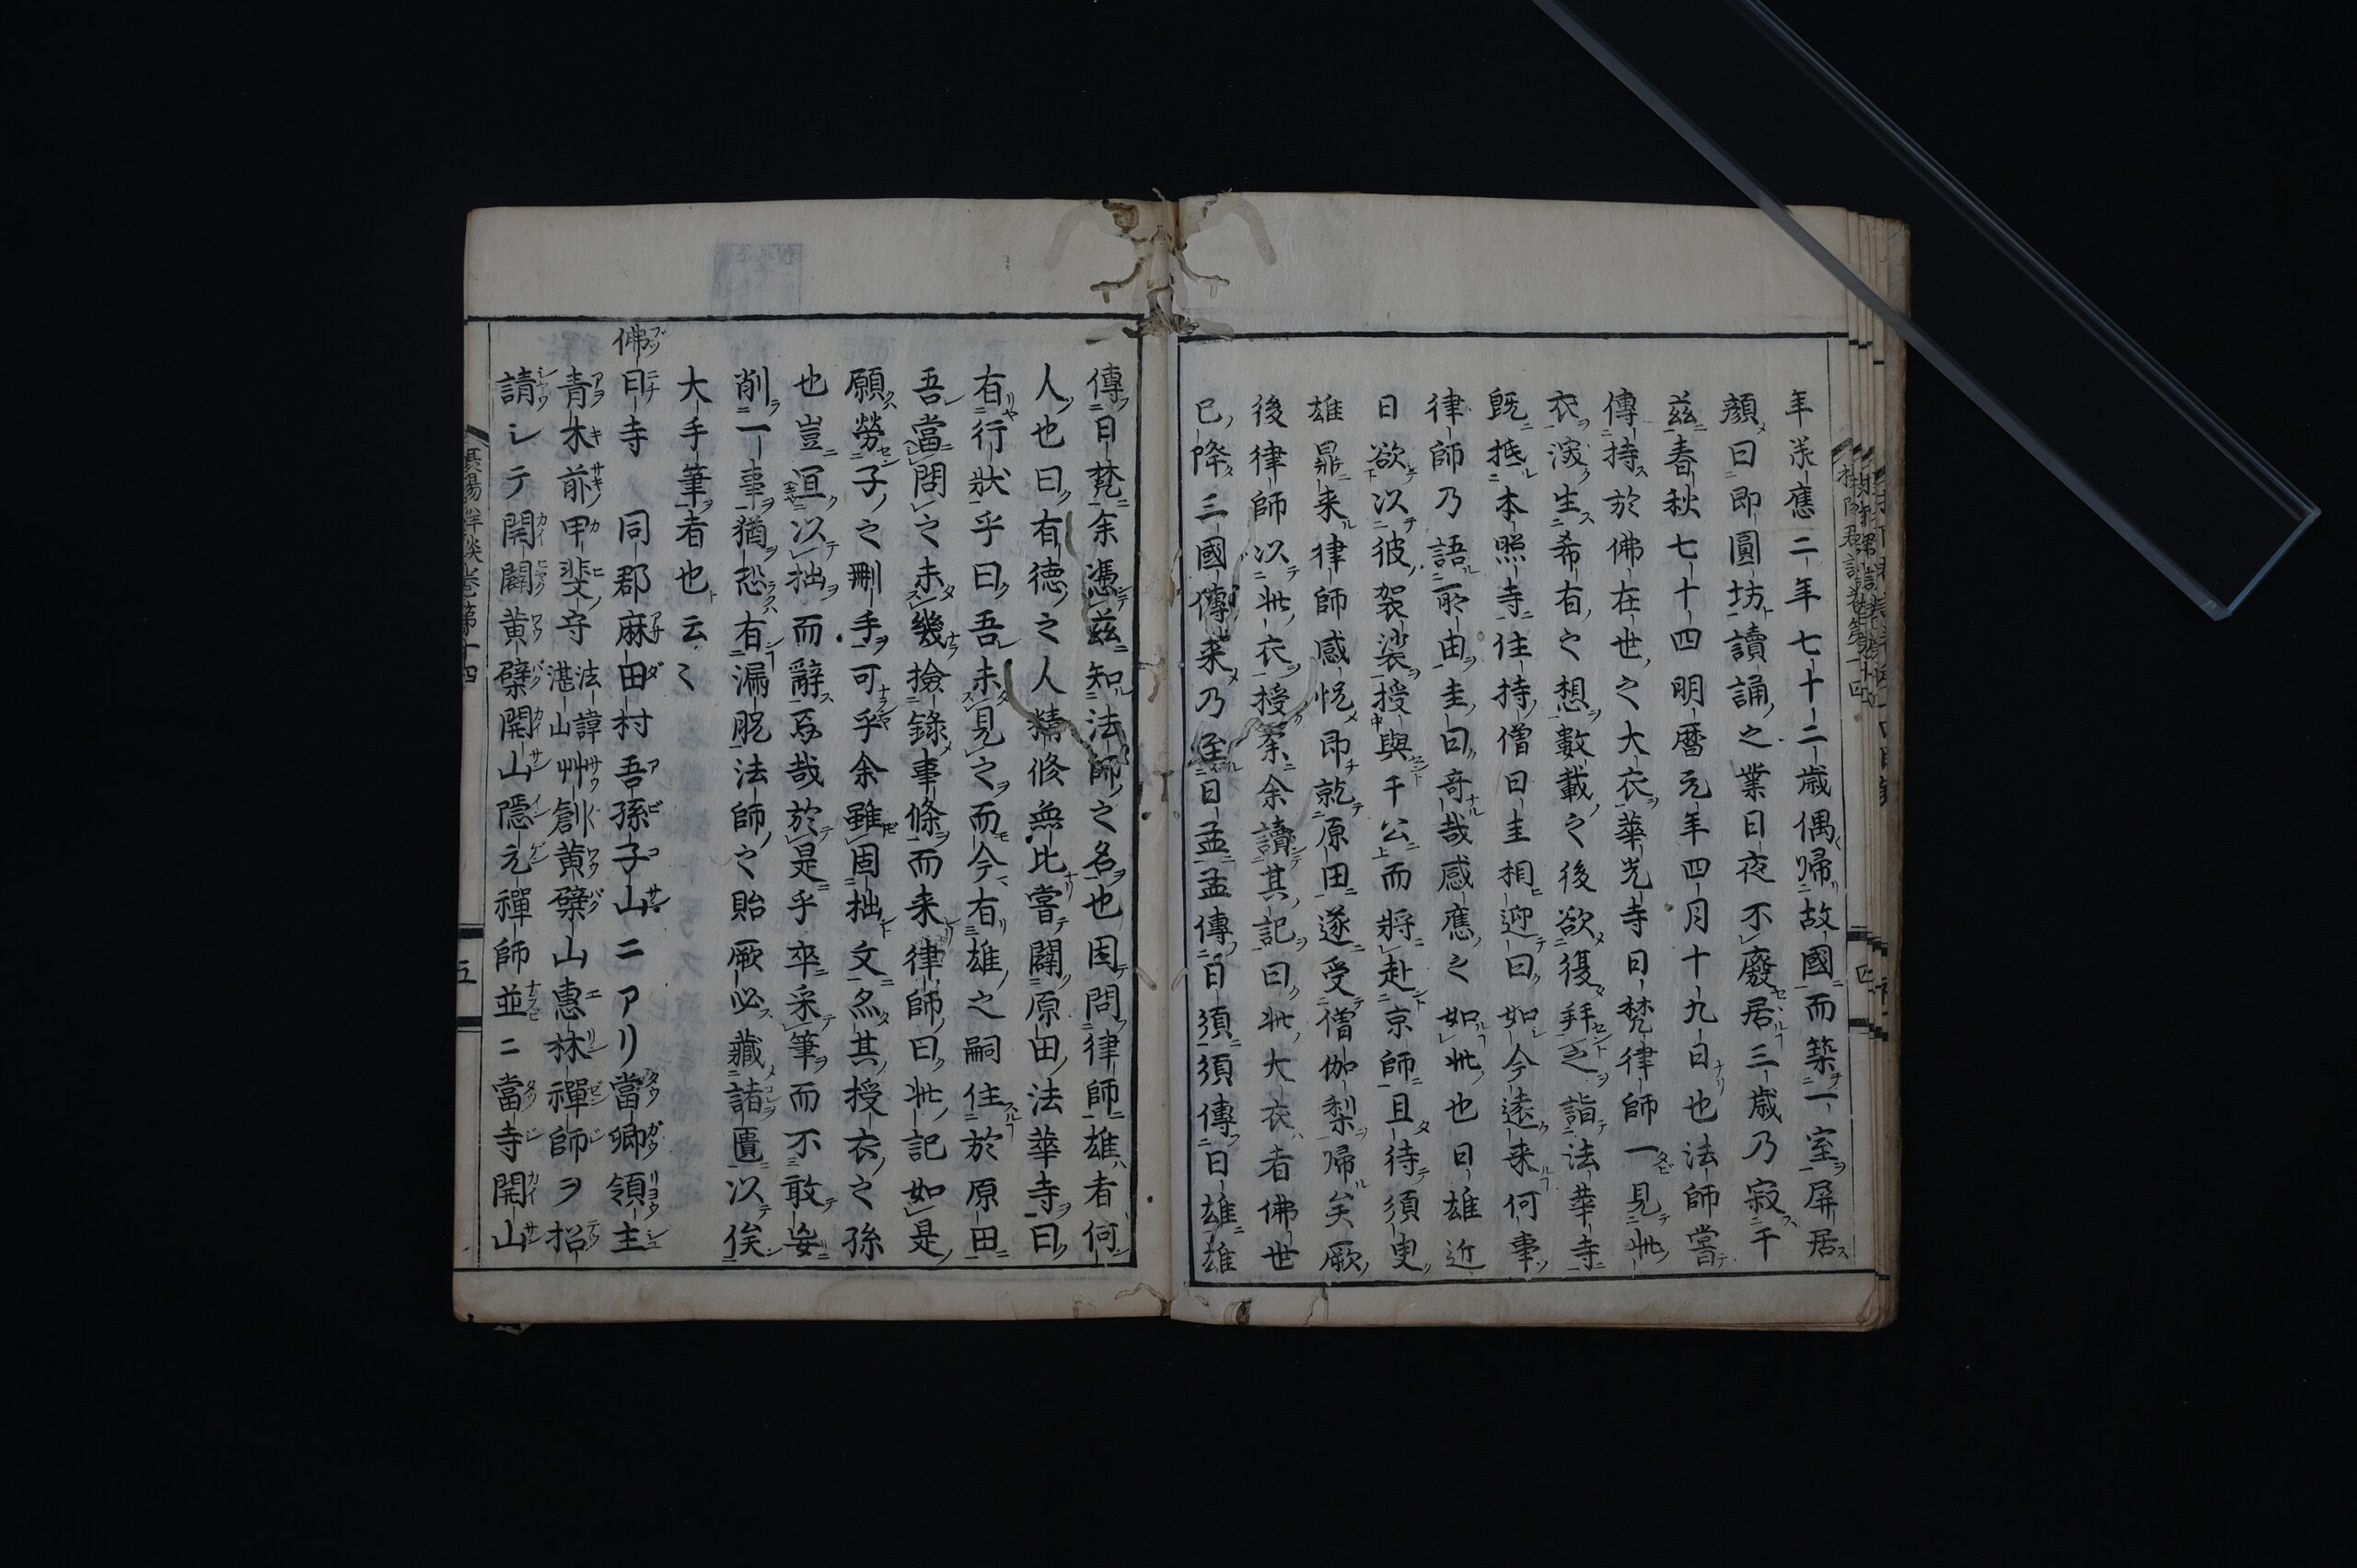 年癸應二年七十二歳偶帰故國而築一室屏居
顔曰即圓坊讀誦之業日夜不廢居三歳乃寂于
茲春秋七十四明暦元年四月十九日也法師嘗
傳持於佛在世之大衣華光寺日梵律師一見此
衣深生希有之想數載之後欲復拜之詣法華寺
既抵本照寺住持僧日圭相迎曰如今遠来何事
律師乃語所由圭曰奇哉感應之如此也日雄近
日欲以彼袈裟授與千公而將赴京師且待須臾
雄鼎来律師感悦即乾原田遂受僧伽梨帰矣厥
後律師以此衣授余余讀其記曰此大衣者佛世
已降三國傳来乃至日孟孟傳日須須傳日雄雄
傳日梵余憑茲知法師之名也因問律師雄者何
人也曰有德之人精修無比嘗闢原田法華寺曰
有行狀乎曰吾未見之而今有雄之嗣住於原田
吾當問之未幾撿錄事條而来律師曰此記如是
願勞子之刪手可乎余雖固拙文矣其授衣之孫
也豈冝以拙而辭焉哉於是乎卒采筆而不敢妄
削一事猶恐有漏脱法師之貽厥必藏諸匱以俟
大手筆者也云々
佛日寺 同郡麻田村吾孫子山ニアリ當卿領主
青木前甲斐守法諱湛山艸創黄檗山惠林禪師ヲ招
請シテ開闢黄檗開山隱元禪師並ニ當寺開山
攝陽群談巻第十四
五